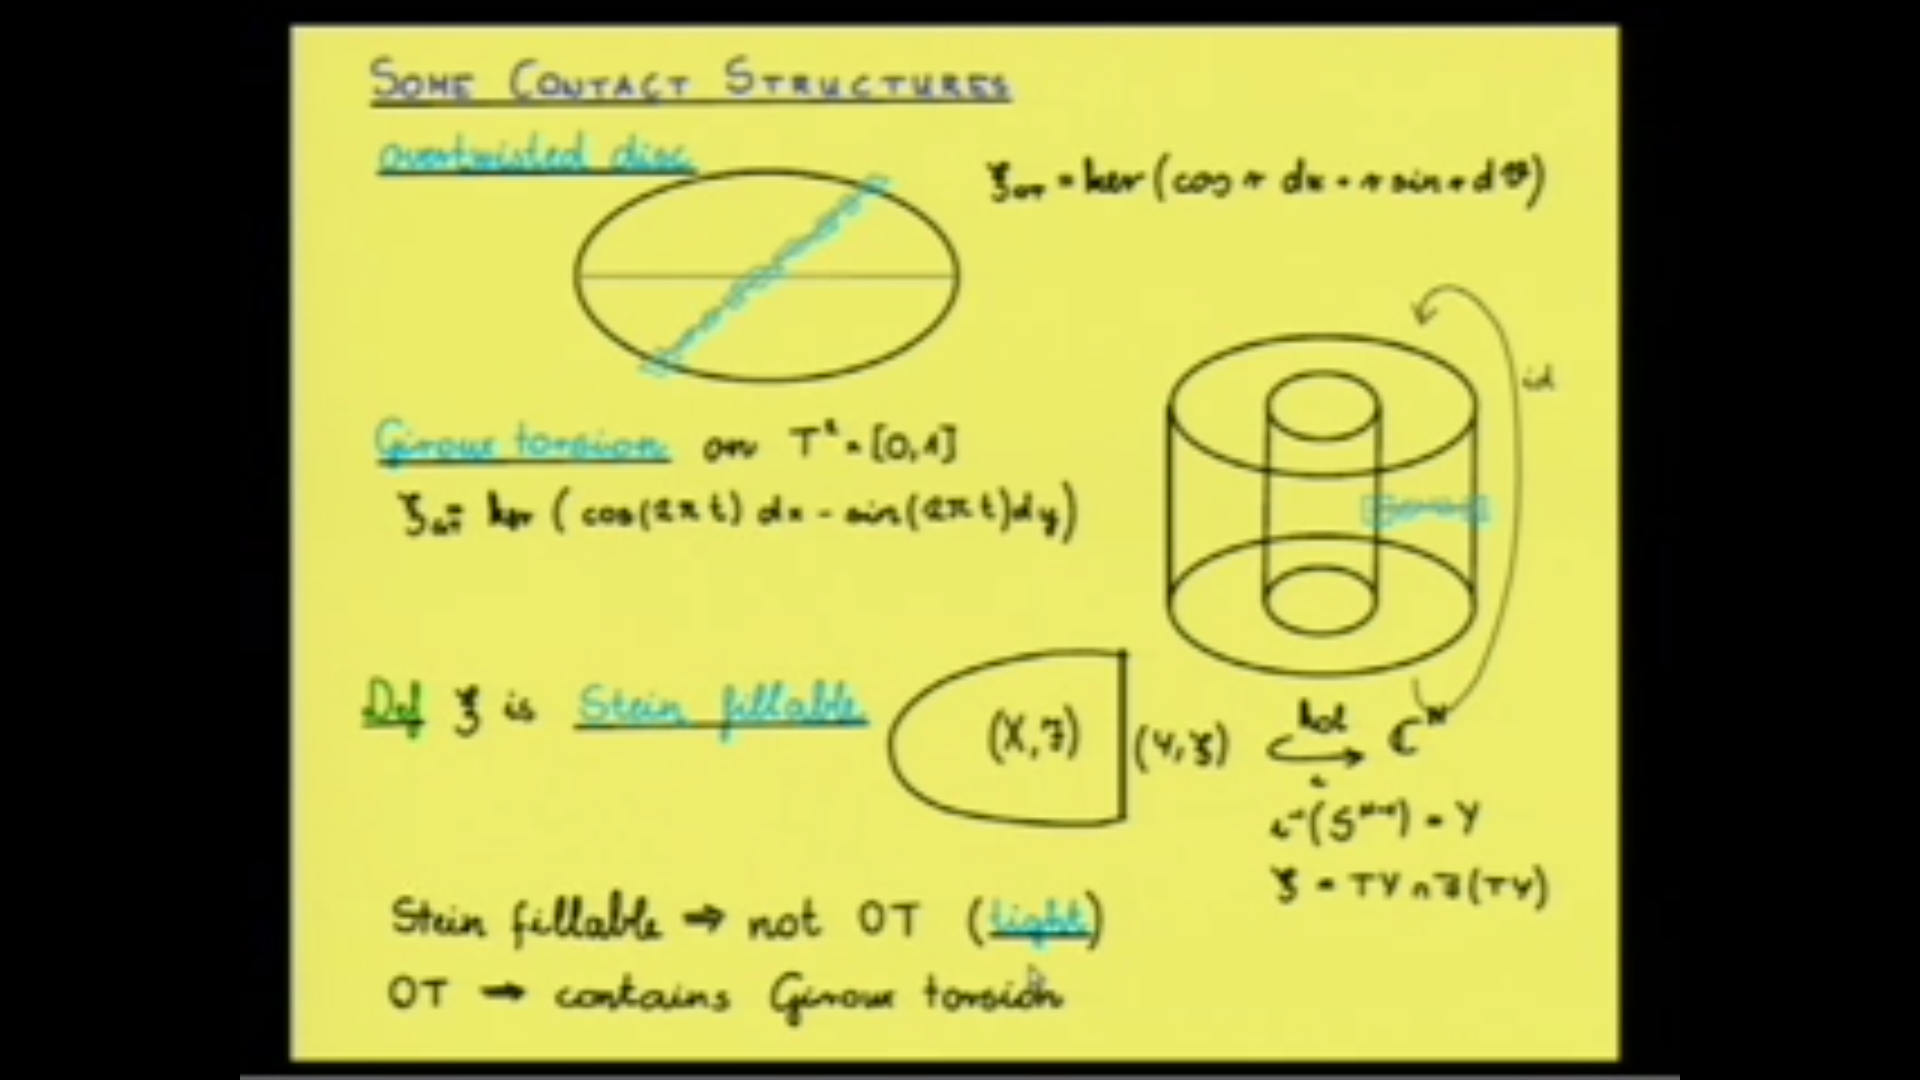 SOME CONTACT STRUCTURES
overtwisted disc
ξ_OT = ker(cos r dx + r sin r dϑ)
id
Giroux torsion on T² × [0,1]
ξ_GT = ker (cos(2πt) dx - sin(2πt)dy)
Def ξ is Stein fillable
(X,J) (Y,ξ) hol ℂᴺ
ι
ι⁻¹(S) = Y
ξ = TY ∩ J(TY)
Stein fillable ⇒ not OT (tight)
OT ⇒ contains Giroux torsion